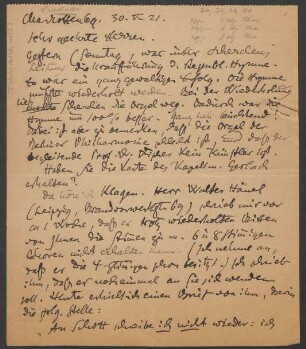 Charlottenbg. 30. VI. 21.
Sehr geehrte Herren.
Gestern (Sonntag, war unter
die Erstaufführung d. Republ. Hymne.
Es war ein ganz gewaltiger Erfolg. Die Hymne
mußte wiederholt werden. Bei der Wiederholung
blieb die Orgel weg. Dadurch war die
Hymne um 100% besser.
Dabei ist aber zu bemerken, daß die Orgel der
Berliner Philharmonie schlecht ist und daß der
begleitende Prof. Dr. kein Künstler ist.
Haben Sie die Karte des Kapellm. Gerlach
erhalten?
Klagen. Herr Walter Hänel
(Leipzig, schrieb mir vor
ca 1 Woche, daß er trotz wiederholten Bitten
von Ihnen die Stücke zu m. 6 u 8stimmigen
Chören nicht erhalten kann. Ich nehme an,
daß er die 4-stimmigen schon besitzt. Ich schrieb
ihm, daß er noch einmal an Sie sich wenden
soll. Heute erhielt ich einen Brief von ihm, darin
die folg. Stelle:
An Schott schreibe ich nicht wieder: ich